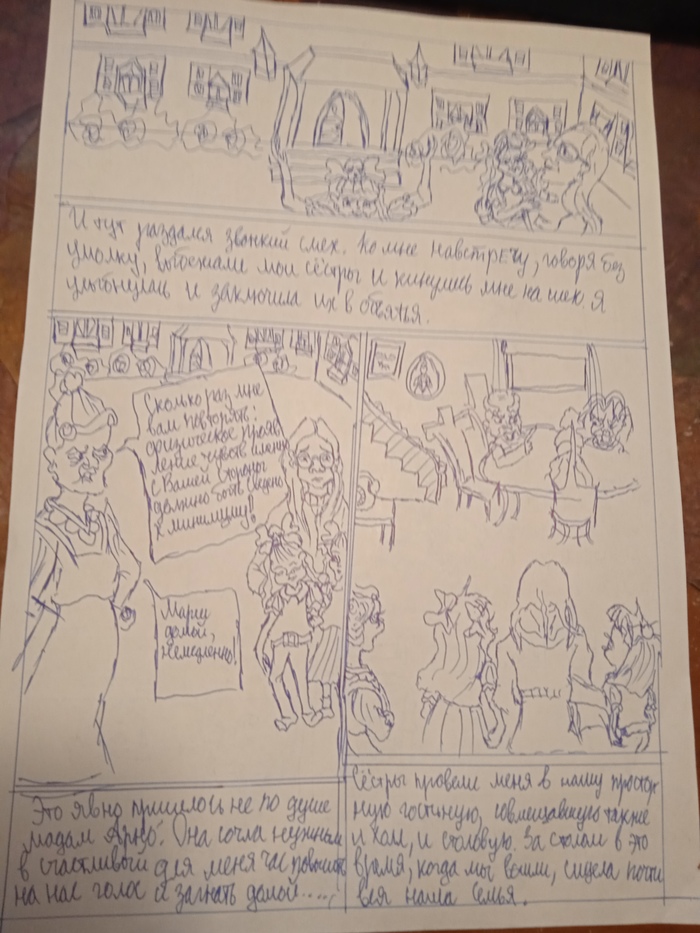 И тут раздался звонкий смех. Ко мне навстречу, говоря без
умолку, выбежали мои сёстры и кинулись мне на шею. Я
улыбнулась и заключила их в объятья.
Сколько раз мне
вам повторять:
физическое прояв
ление чувств
с Вашей стороны
должно быть сведено
к минимуму!
Марш
домой,
немедленно!
Это явно пришлось не по душе
мадам Арно. Она сочла нужным
в счастливый для меня час повысить
на нас голос и загнать домой.....
Сёстры провели меня в нашу простор-
ную гостиную, совмещавшую также
и холл, и столовую. За столом в это
время, когда мы вошли, сидела почти
вся наша семья.